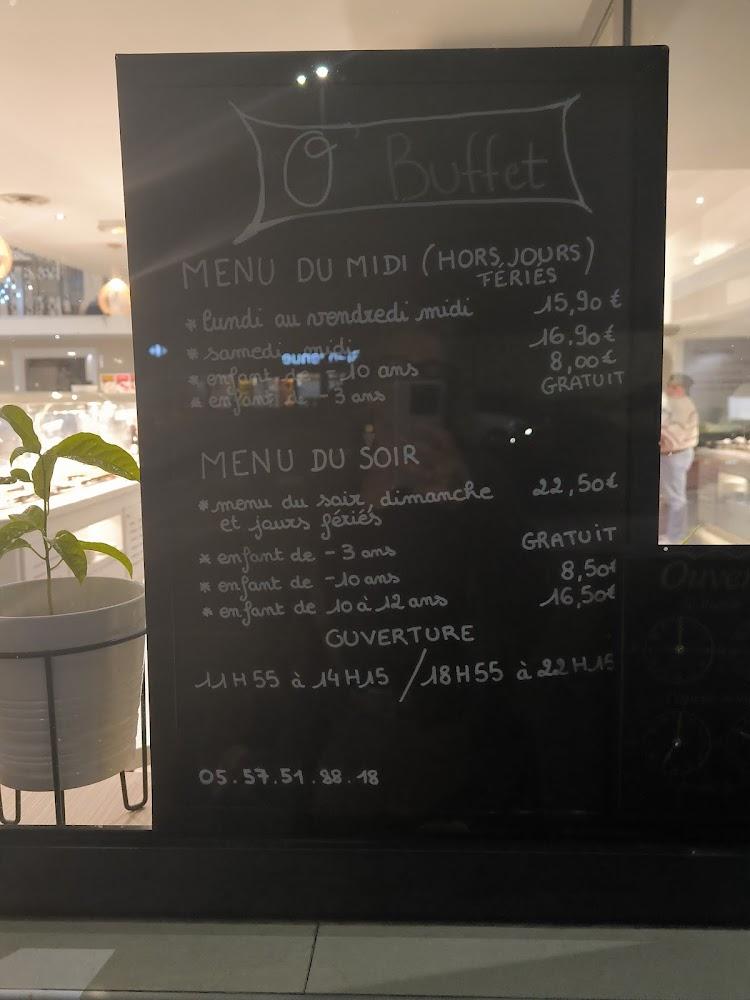 O' Buffet
MENU DU MIDI (HORS JOURS FÉRIÉS)
* lundi au vendredi midi 15,90 €
* samedi midi 16,90 €
* enfant de -10 ans 8,00 €
* enfant de -3 ans GRATUIT
MENU DU SOIR
* menu du soir, dimanche 22,50€
et jours fériés
* enfant de -3 ans GRATUIT
* enfant de -10 ans 8,50€
* enfant de 10 à 12 ans 16,50€
OUVERTURE
11H55 à 14H15 / 18H55 à 22H15
05.57.51.88.18